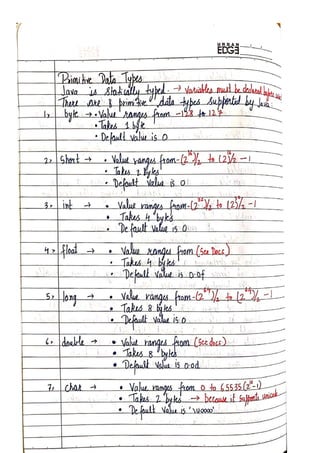 EDGE
Primitive Data Types
Java is statically typed. → variables must be declared before use
There are 8 primitive data types supported by Java:
1> byte → • Value ranges from -128 to 127
• Takes 1 byte
• Default value is 0
2> Short → • Value ranges from -(2^16)/2 to (2^16)/2 -1
• Takes 2 Bytes
• Default value is 0
3> int → • Value ranges from -(2^32)/2 to (2^32)/2 -1
• Takes 4 bytes
• Default value is 0
4> float → • Value ranges from (See Docs)
• Takes 4 bytes
• Default value is 0.0f
5> long → • Value ranges from -(2^64)/2 to (2^64)/2 -1
• Takes 8 bytes
• Default value is 0
6> double → • Value ranges from (See docs)
• Takes 8 bytes
• Default value is 0.0d
7> char → • Value ranges from 0 to 65535 (2^16-1)
• Takes 2 bytes → because it supports unicode
• Default value is '\u0000'